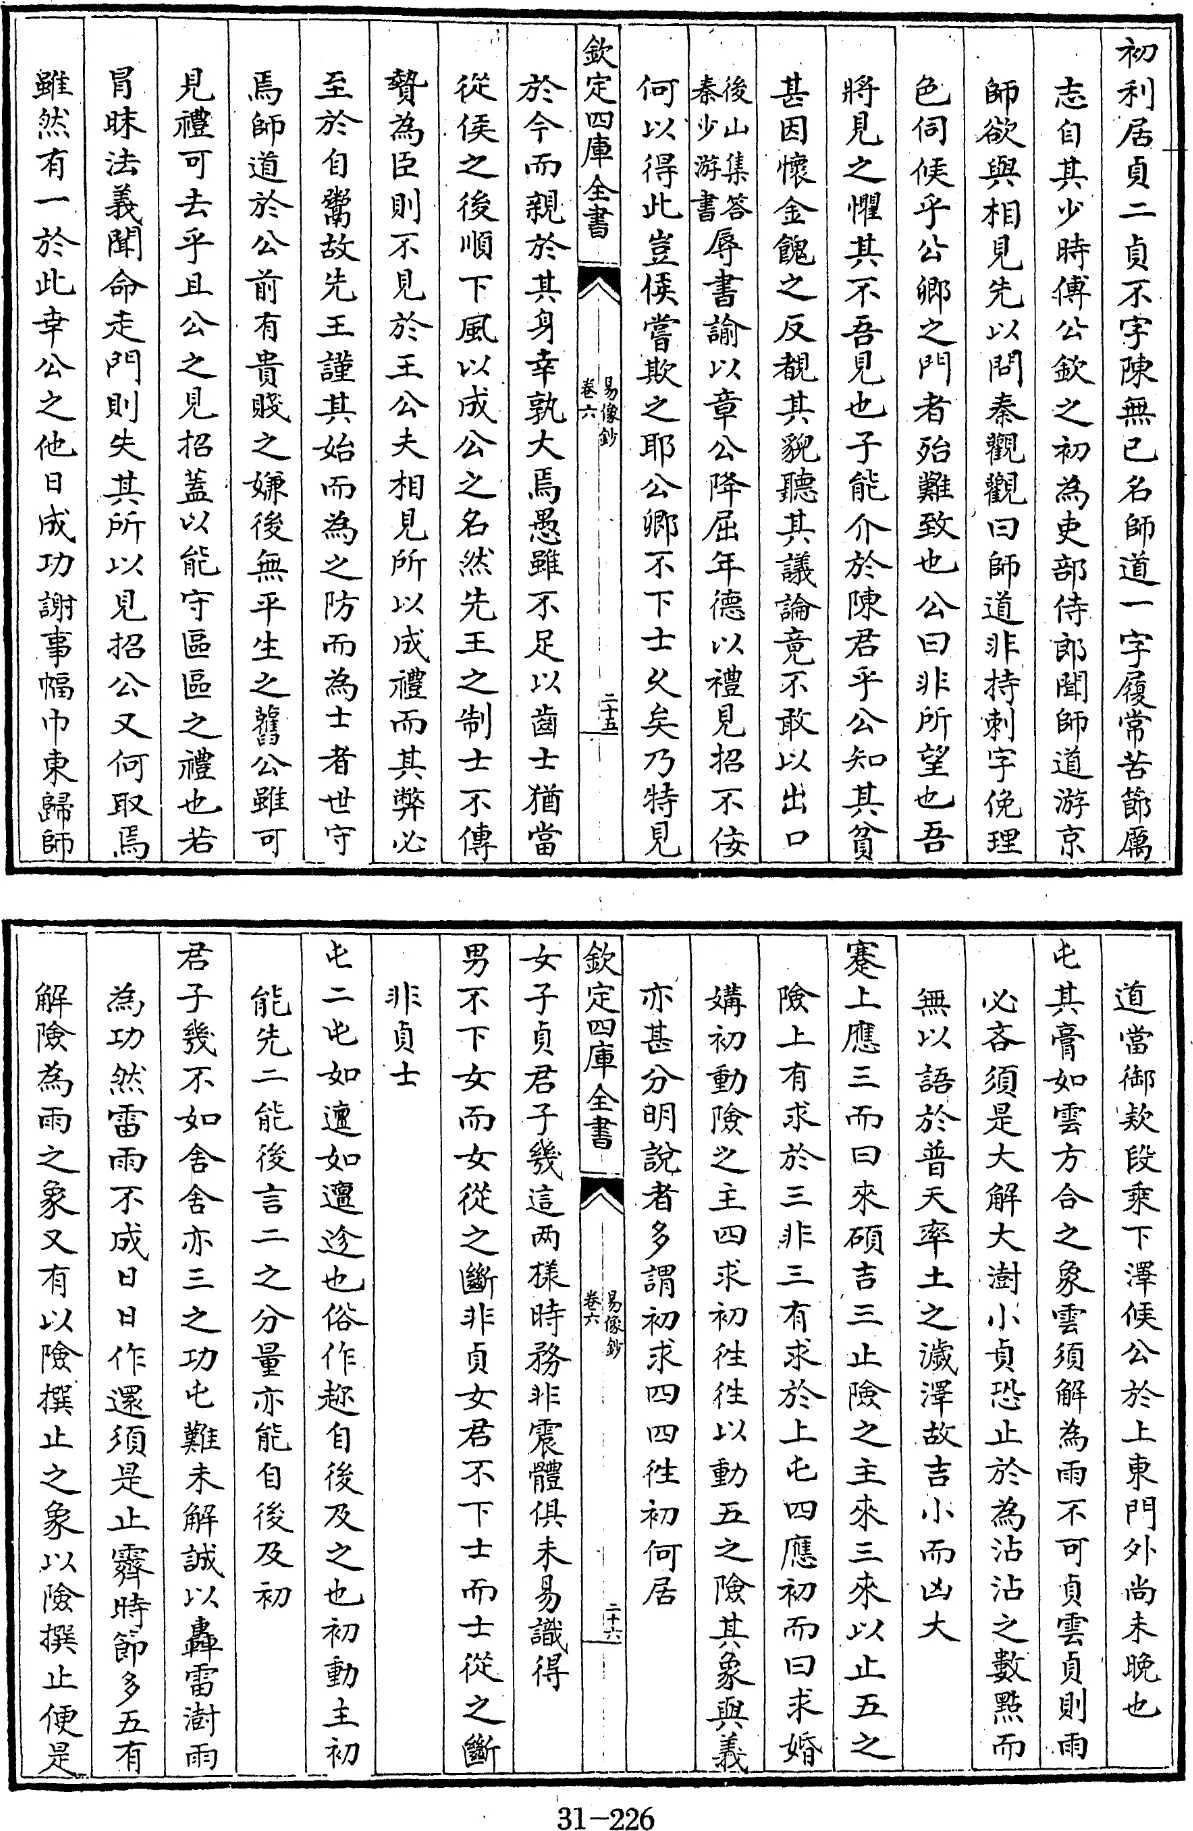 初利居貞二貞不字陳無已名師道一字履常苦節厲
志自其少時傅公欽之初為吏部侍郎聞師道游京
師欲與相見先以問秦觀觀曰師道非持刺字俛理
色伺候乎公卿之門者殆難致也公曰非所望也吾
將見之懼其不吾見也子能介於陳君乎公知其貧
甚因懷金餽之反覩其貌聽其議論竟不敢以出口
後山集答秦少游書辱書諭以章公降屈年德以禮見招不佞
何以得此豈侯嘗欺之耶公卿不下士乆矣乃特見
欽定四庫全書
易像鈔
卷六
二十五
於今而親於其身幸孰大焉愚雖不足以齒士猶當
從侯之後順下風以成公之名然先王之制士不傳
贄為臣則不見於王公夫相見所以成禮而其弊必
至於自鬻故先王謹其始而為之防而為士者世守
焉師道於公前有貴賤之嫌後無平生之舊公雖可
見禮可去乎且公之見招蓋以能守區區之禮也若
冐昧法義聞命走門則失其所以見招公又何取焉
雖然有一於此幸公之他日成功謝事幅巾東歸師
道當御欵段乘下澤候公於上東門外尚未晚也
屯其膏如雲方合之象雲須解為雨不可貞雲貞則雨
必吝須是大解大澍小貞恐止於為沾沾之數㸃而
無以語於普天率土之濊澤故吉小而凶大
蹇上應三而曰來碩吉三止險之主來三來以止五之
險上有求於三非三有求於上屯四應初而曰求婚
媾初動險之主四求初徃徃以動五之險其象與義
亦甚分明說者多謂初求四四徃初何居
欽定四庫全書
易像鈔
卷六
二十六
女子貞君子幾這兩樣時務非震體俱未易識得
男不下女而女從之斷非貞女君不下士而士從之斷
非貞士
屯二屯如邅如邅迻也俗作趂自後及之也初動主初
能先二能後言二之分量亦能自後及初
君子幾不如舍舍亦三之功屯難未解誠以轟雷澍雨
為功然雷雨不成日日作還須是止霽時節多五有
解險為雨之象又有以險撰止之象以險撰止便是
31-226